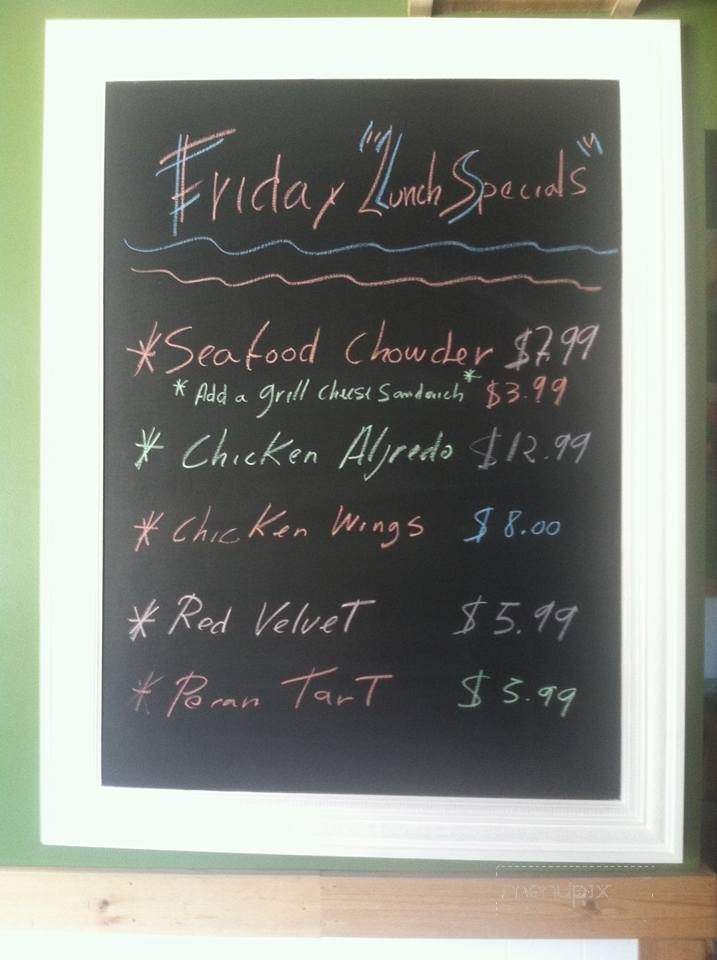 Friday "Lunch Specials"
*Seafood Chowder $7.99
*Add a grill cheese Sandwich* $3.99
* Chicken Alfredo $12.99
* Chicken Wings $8.00
* Red Velvet $5.99
* Pecan Tart $3.99
menupix